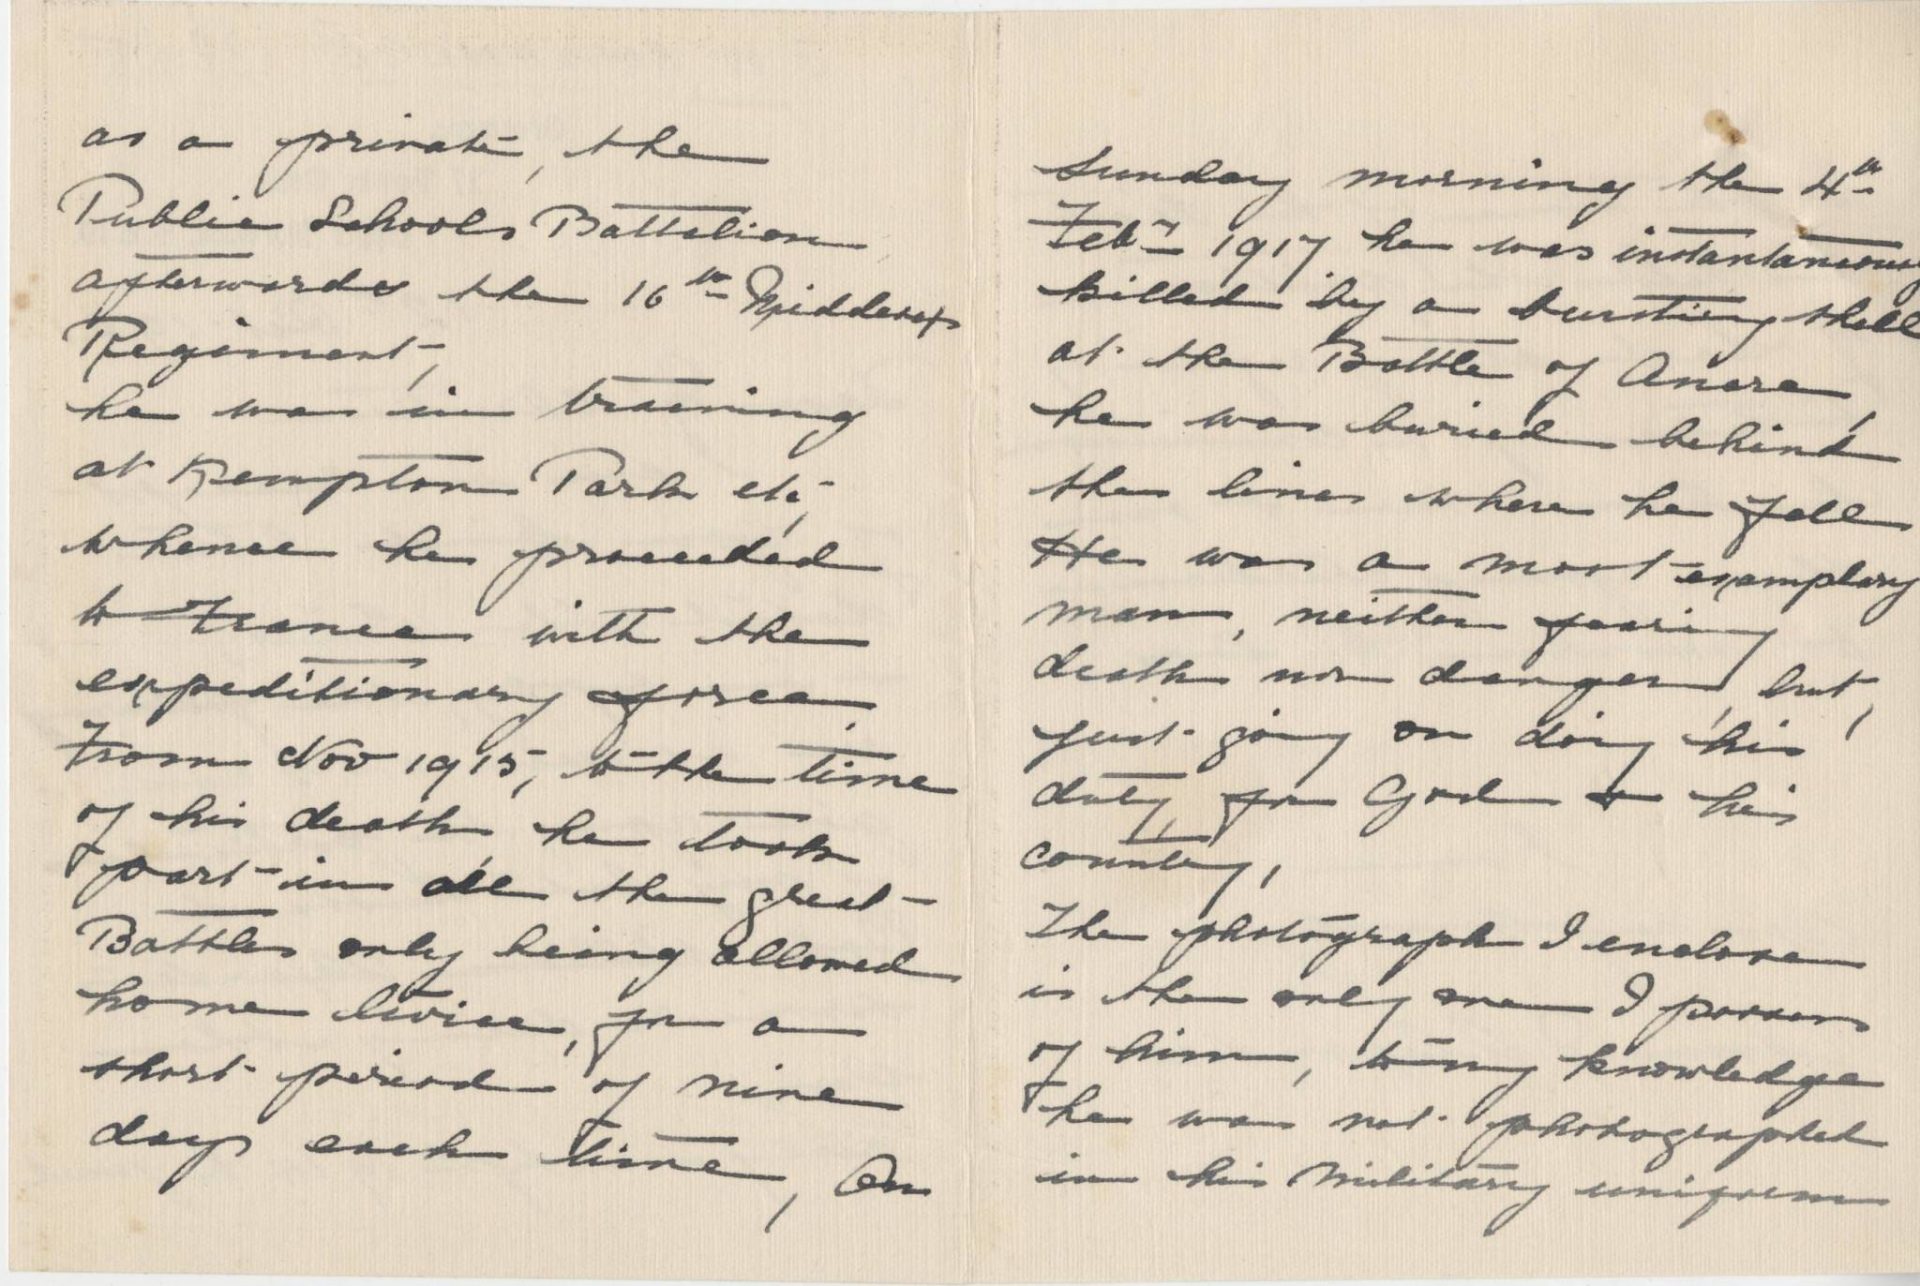 as a private, the
Public Schools Battalion
afterwards the 16th Middlesex
Regiment,
he was in training
at Kempton Park etc,
whence he proceeded
to France with the
expeditionary force,
From Nov 1915, to the time
of his death he took
part in all the great
Battles only being allowed
home twice, for a
short period of nine
days each time, On
Sunday morning the 4th
Feby 1917 he was instantaneously
killed by a bursting shell
at the Battle of Ancre,
he was buried behind
the lines where he fell
He was a most exemplary
man, neither fearing
death nor danger, but,
just going on doing his
duty, for God & his
country,
The photograph I enclose
is the only one I possess
of him, to my knowledge
he was not photographed
in his military uniform